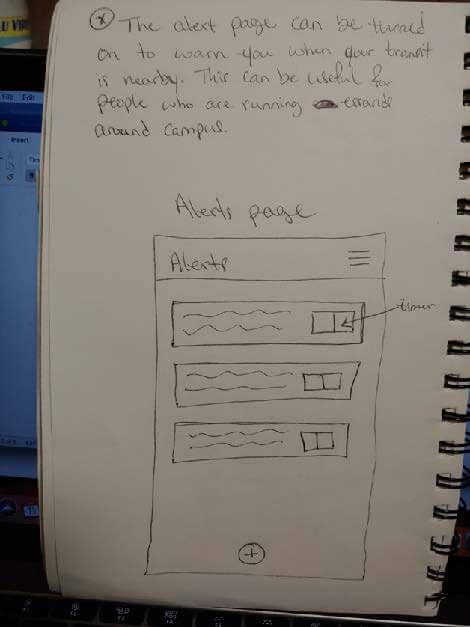 The alert page can be turned
on to warn you when your transit
is nearby. This can be useful for
people who are running errands
around campus.
Alerts page
Alerts
timer
+
File Edit
Insert